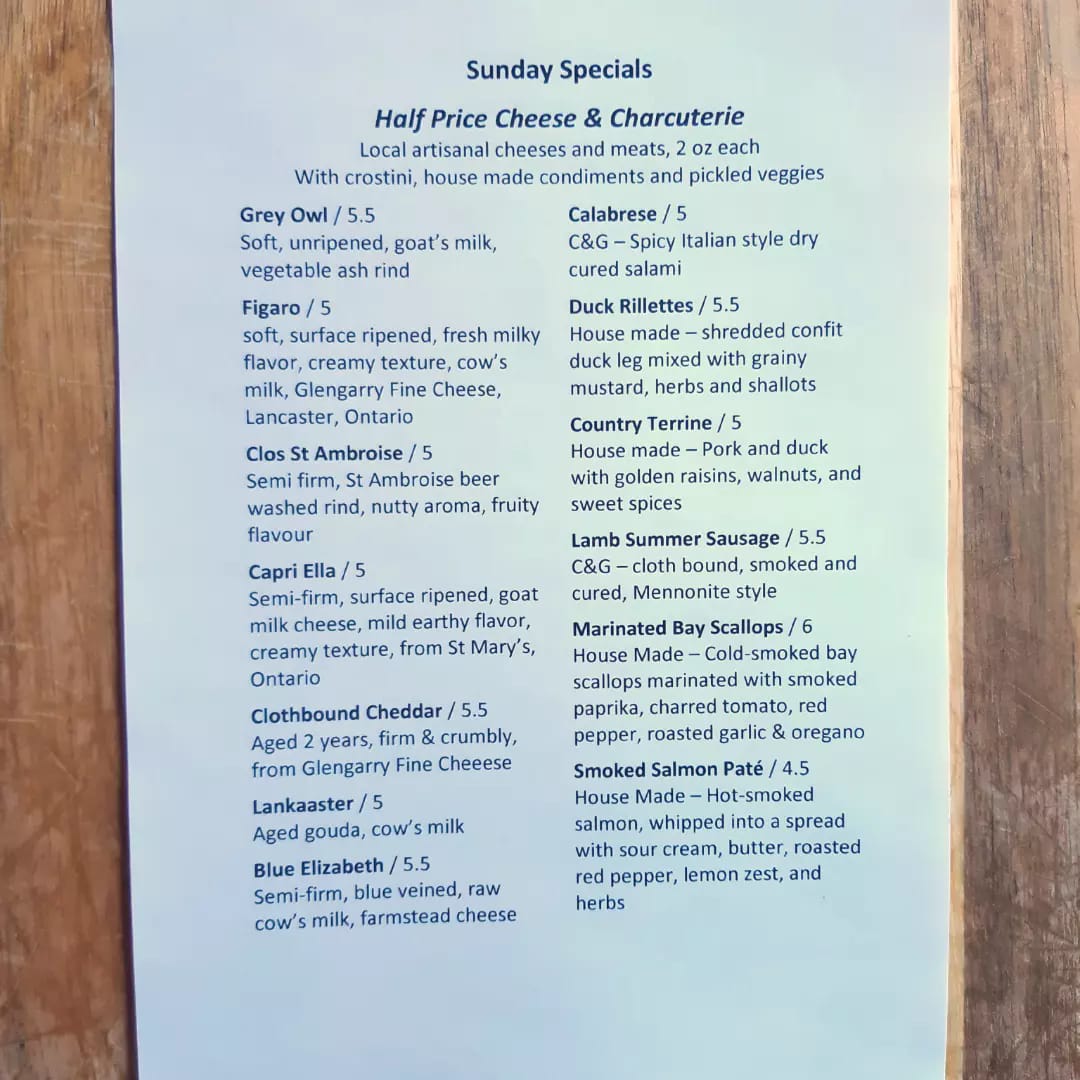 Sunday Specials
Half Price Cheese & Charcuterie
Local artisanal cheeses and meats, 2 oz each
With crostini, house made condiments and pickled veggies
Grey Owl / 5.5
Soft, unripened, goat's milk,
vegetable ash rind
Figaro / 5
soft, surface ripened, fresh milky
flavor, creamy texture, cow's
milk, Glengarry Fine Cheese,
Lancaster, Ontario
Clos St Ambroise / 5
Semi firm, St Ambroise beer
washed rind, nutty aroma, fruity
flavour
Capri Ella / 5
Semi-firm, surface ripened, goat
milk cheese, mild earthy flavor,
creamy texture, from St Mary's,
Ontario
Clothbound Cheddar / 5.5
Aged 2 years, firm & crumbly,
from Glengarry Fine Cheeese
Lankaaster / 5
Aged gouda, cow's milk
Blue Elizabeth / 5.5
Semi-firm, blue veined, raw
cow's milk, farmstead cheese
Calabrese / 5
C&G – Spicy Italian style dry
cured salami
Duck Rillettes / 5.5
House made – shredded confit
duck leg mixed with grainy
mustard, herbs and shallots
Country Terrine / 5
House made – Pork and duck
with golden raisins, walnuts, and
sweet spices
Lamb Summer Sausage / 5.5
C&G – cloth bound, smoked and
cured, Mennonite style
Marinated Bay Scallops / 6
House Made – Cold-smoked bay
scallops marinated with smoked
paprika, charred tomato, red
pepper, roasted garlic & oregano
Smoked Salmon Paté / 4.5
House Made – Hot-smoked
salmon, whipped into a spread
with sour cream, butter, roasted
red pepper, lemon zest, and
herbs